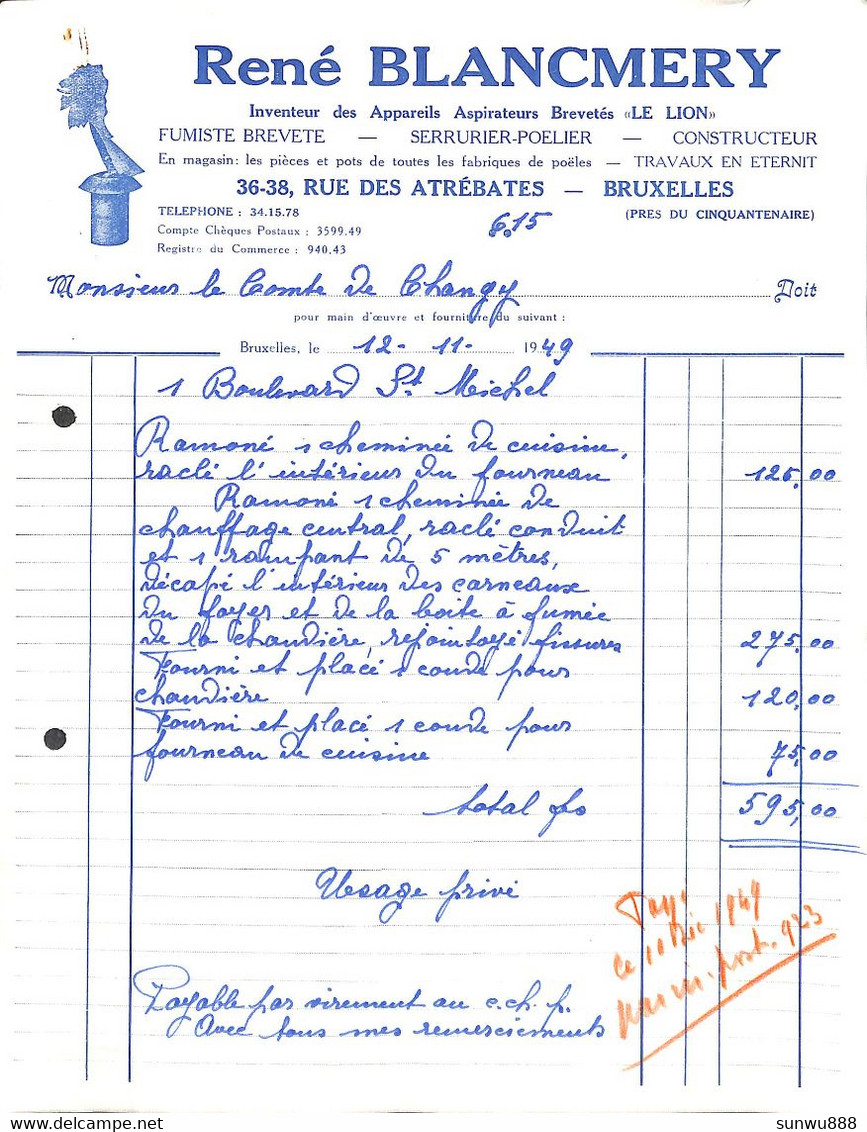 René BLANCMERY
Inventeur des Appareils Aspirateurs Brevetés «LE LION»
FUMISTE BREVETE — SERRURIER-POELIER — CONSTRUCTEUR
En magasin: les pièces et pots de toutes les fabriques de poëles — TRAVAUX EN ETERNIT
36-38, RUE DES ATRÉBATES — BRUXELLES
TELEPHONE : 34.15.78
(PRES DU CINQUANTENAIRE)
6.15
Compte Chèques Postaux : 3599.49
Registre du Commerce : 940.43
Monsieur le Comte de Changy Doit
pour main d'œuvre et fourniture du suivant :
Bruxelles, le 12 - 11 - 1949
1 Boulevard St Michel
Ramoné 1 cheminée de cuisine,
raclé l'intérieur du fourneau 125,00
Ramoné 1 cheminée de
chauffage central, raclé conduit
et 1 rampant de 5 mètres,
décapé l'intérieur des carneaux
du foyer et de la boite à fumée
de la chaudière, rejointoyé fissures 275,00
Fourni et placé 1 coude pour
chaudière 120,00
Fourni et placé 1 coude pour
fourneau de cuisine 75,00
total fs 595,00
Usage privé
Payé
ce 10 Déc 1949
par vir. post. 923
Payable par virement au c.ch.p.
Avec tous mes remerciements
www.delcampe.net
sunwu888